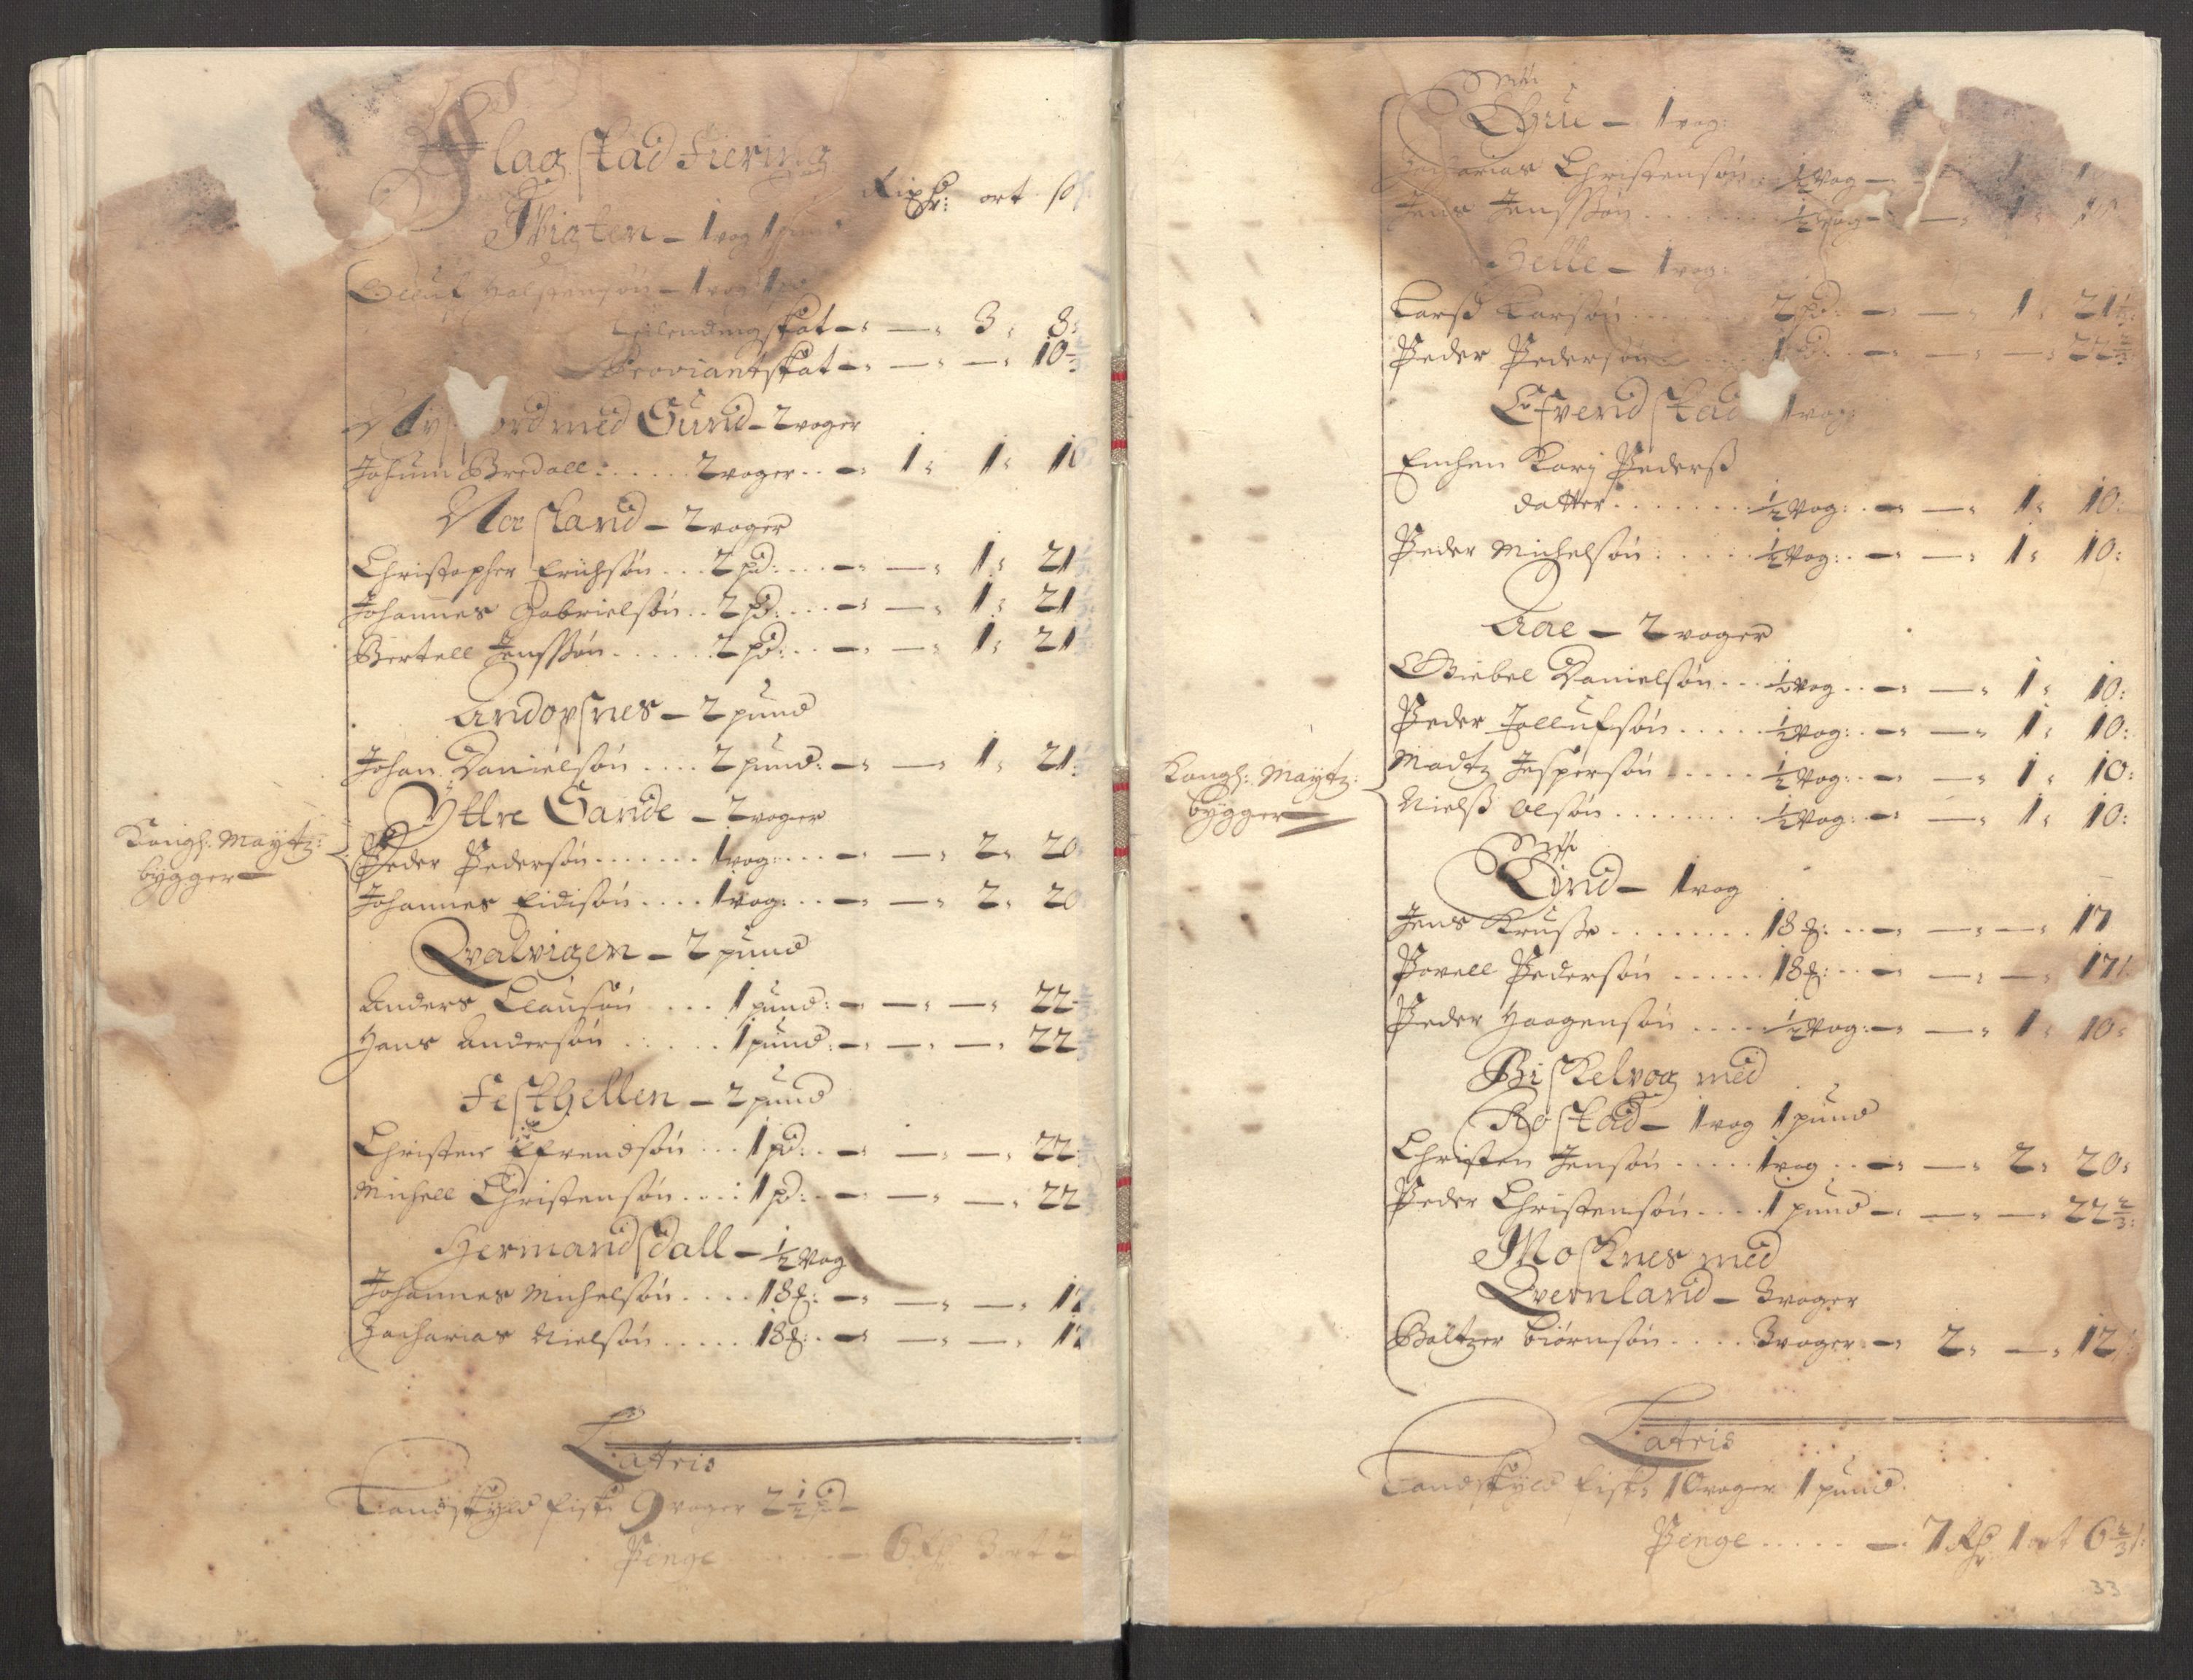 Flagstad Fiering
Rixdr: ort ß
Thigten — 1 vog 1 pund
Oeluf Halstensøn — 1 vog 1 pd
Leilendingskat — — 3 8:
Proviantskat — — — 10 2/3
Ny ord med Sund — 2 voger
Johum Bredall 2 voger — 1 1 16
Nesland — 2 voger
Christopher Erichsøn 2 pd: — — 1 21
Johannes Gabrielsøn 2 pd: — — 1 21
Bertell Jenssøn 2 pd: — — 1 21
Andopsnes — 2 pund
Johan Danielsøn 2 pund: — — 1 21
Yttre Sande — 2 voger
Kongl: Maytz:
bygger
Peder Pedersøn 1 vog — — 2 20
Johannes Eidisøn 1 vog: — — 2 20
Qvalvigen — 2 pund
Anders Clausøn 1 pund: — — — 22
Hans Andersøn 1 pund: — — — 22
Festhellen — 2 pund
Christen Efvendsøn 1 pd: — — — 22
Michell Christensøn 1 pd: — — — 22
Hermandsdall — 1/2 Vog
Johannes Michelsøn 18 — — — 17
Zacharias Nielsøn 18 — — — 17
Latris
Landskyld fisk: 9 voger 2 1/2 pd
Penge — 6 Rdr 3 ort 2
1 vog:
Zacharias Christensøn 1/2 Vog — — 1
Jens Jenssøn 1/2 Vog — — 1 10
Helle — 1 vog:
Larß Larsøn 2 pd: — — 1 21
Peder Pedersøn 1 pd: — — — 22 2/3
Efvendstad 1 vog:
Enchen Karj Pederß
datter 1/2 Vog: — — 1 10:
Peder Michelsøn 1/2 Vog: — — 1 10:
Aae — 2 voger
Giebel Danielsøn 1/2 Vog — — 1 10:
Peder Jollufsøn 1/2 Vog: — — 1 10:
Kongl: Maytz:
bygger
Madtz Jespersøn 1/2 Vog: — — 1 10:
Nielß Olsøn 1/2 Vog: — — 1 10:
Sund — 1 vog
Jens Kruße 18 — — — 17
Povell Pedersøn 18 — — — 17
Peder Haagensøn 1/2 Vog: — — 1 10:
Biskelvog med
Rostad — 1 vog 1 pund
Christen Jensøn 1 vog — — 2 20:
Peder Christensøn 1 pund — — — 22 2/3:
Mosknes med
Qvernland — 3 voger
Baltzer Biørnsøn 3 voger — 2 — 12
Latris
Landskyld fisk: 10 voger 1 pund.
Penge — 7 Rdr 1 ort 6 2/3 ß:
33